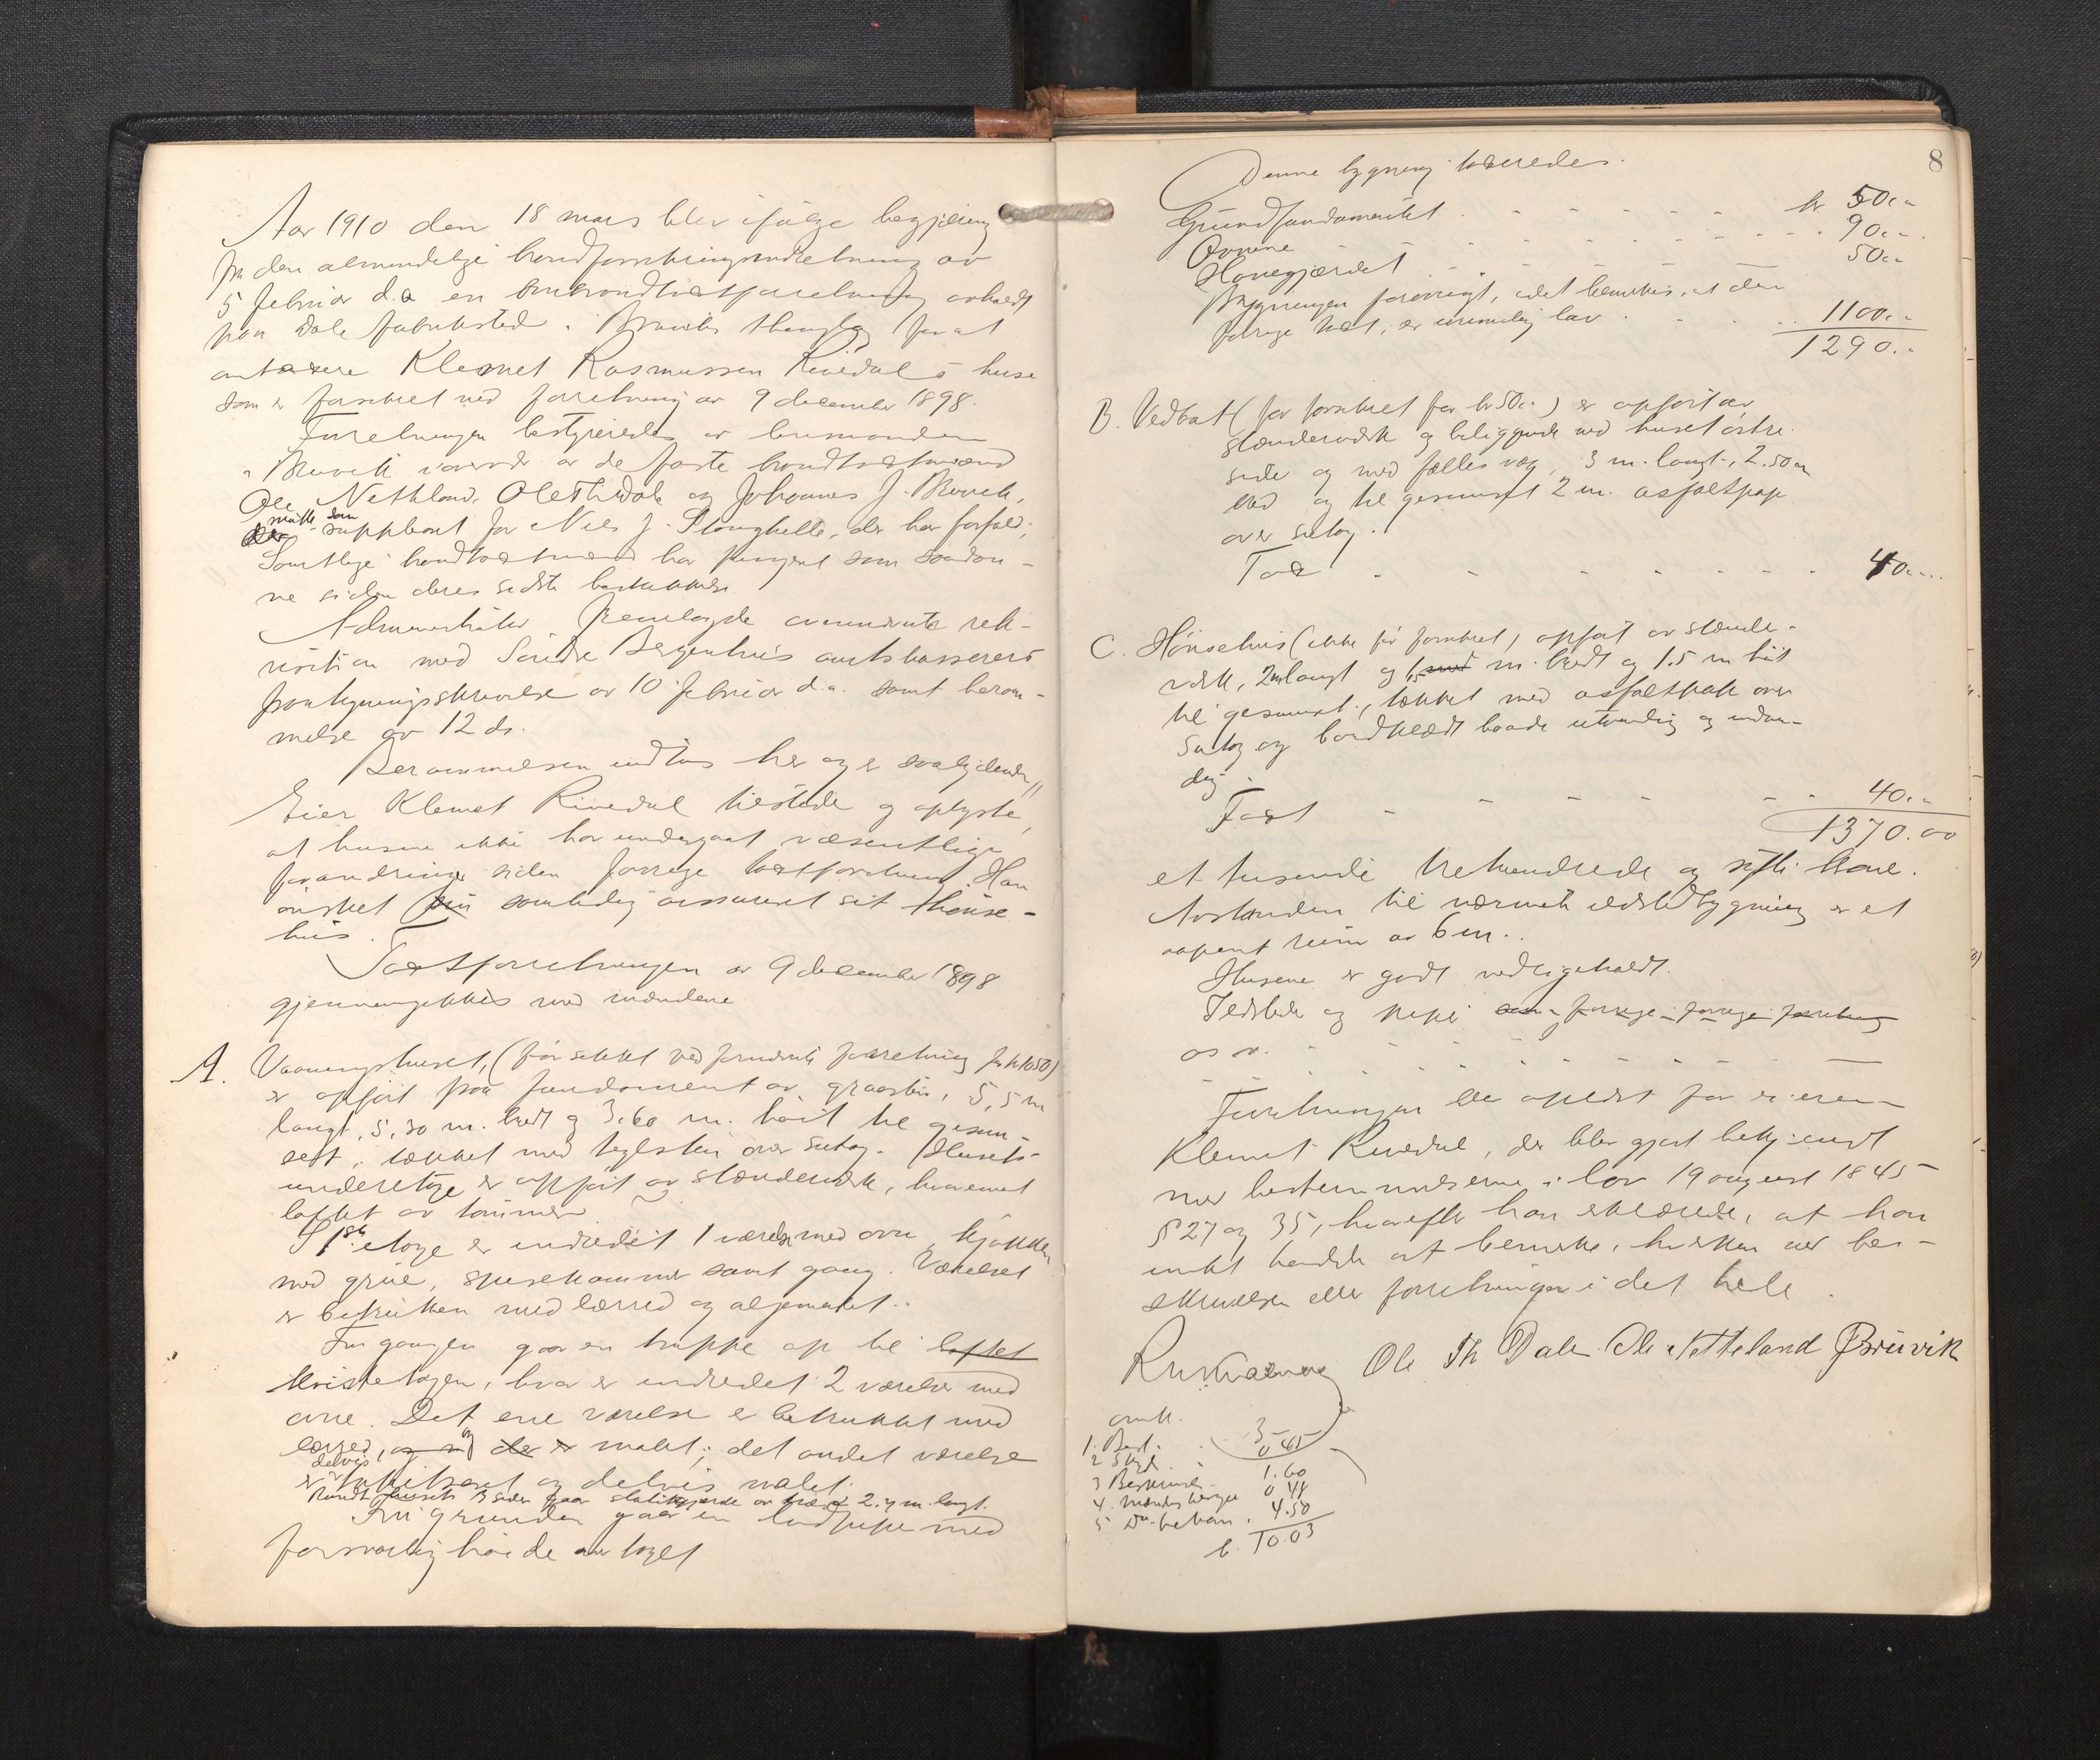 Aar 1910 den 18 mars blev ifølge begjæring
fra den almindelige brandforsikringsindretning av
5 februar d.a. en ombrandtakstforretning avholdt
paa Dale fabriksted i Bruviks thinglag for at
omtaxere Klemet Rasmussen Rivedals huse
som er forsikret ved forretning av 9 december 1898.
Forretningen bestyredes av lensmanden
i Bruvik av de faste brandtakstmænd
Ole Nettland, Ole Th Dale og Johannes J. Bruvik,
møtte som
suppleant for Nils J. Stanghelle, der har forfald;
Samtlige brandtakstmænd har fungert som saadan-
ne siden deres sidste beskikkelse
Administrator fremlagde omrekvirerte rek-
visition med Søndre Bergenhus amtskasserers
paategningsskrivelse av 10 februar d.a. samt beram-
melse av 12 ds.
Berammelsen indtas her og er saalydende "
Eier Klemet Rivedal tilstede og oplyste,
at husene ikke har undergaat væsentlige
forandringer siden forrige takstforretning. Han
ønsket samtidig assureret sit hønse-
hus.
Takstforretningen av 9 december 1898
gjennemgikkes med mændene
A. Vaaningshuset, (før sikket ved forrige forretning for kr 1050)
er opført paa fundament av graasten, 5,5 m
langt, 5,30 m. bredt og 3,60 m. høit til gesim-
sest, tækket med teglsten over sutag. Husets
underetage er opført av stænderværk, hvorimot
loftet av tømmer
I 1ste etage er indredet 1 værelse med ovn, kjøkken
med grue, spisekammer samt gang. Værelset
er betrukken med lærred og oljemalet.
Fra gangen gaar en trappe op til loftet
kvistetagen, hvor er indredet 2 værelser med
ovne. Det ene værelse er betrukket med
lærred, og malt; det andet værelse
delvis
er og delvis malet.
Rundt husets 3 sider gaar stakitgjærde av træ 2.4 m. langt.
Fra grunden gaar en lodpipe med
forsvarlig høide over taget
8
Denne bygning taxeredes.
Grundfundamentet . - - - - - kr 50.-
Ovnene - - - - - - - 90.-
Havegjærdet - - - - - - 50.-
Bygningen forøvrigt, idet bemerkes, at den
forrige takst, er urimelig lav . . . 1100.-
1290.-
B. Vedbut (før forsikret for kr 50.-) er opført av
stænderværk og beliggende ved huset østre
side og med fælles væg, 3 m. langt, 2.50 m
bred og til gesimset 2 m. asfaltpap
over sutag.
Tax - - - - - - 40.-
C. Hønsehus (ikke før forsikret) opført av stænder-
verk, 2 m langt og 1,5 m. bredt og 1.5 m høit
til gesimset, tækket med asfaltpap over
sutag og bordklædt baade utvendig og inden-
dig.
Taxt - - - - - - 40.-
1370.00
et tusende trehundrede og sytti krone.
Avstanden til nærmeste ildstedbygning er et
aapent rum av 6 m.
Husene er godt vedligeholdt.
Ildsteder og pipe som forrige forrige forretning
os v. - - - - - -
Forretningen blev oplæst for eieren
Klemet Rivedal, der blev gjort bekjendt
med bestemmelserne i lov 19 august 1845
§ 27 og 35, hvorefter han erklærede, at han
intet hadde at bemerke, hverken ved be-
skrivelsen eller forretningen i det hele.
Ole Th Dale Ole Netteland Bruvik
omk.
1. Best. 3-
2 Skyd. 0 45
3 Beskrivels. 1.60
4. 0 48
5 Do 4.50
kr. 10.03